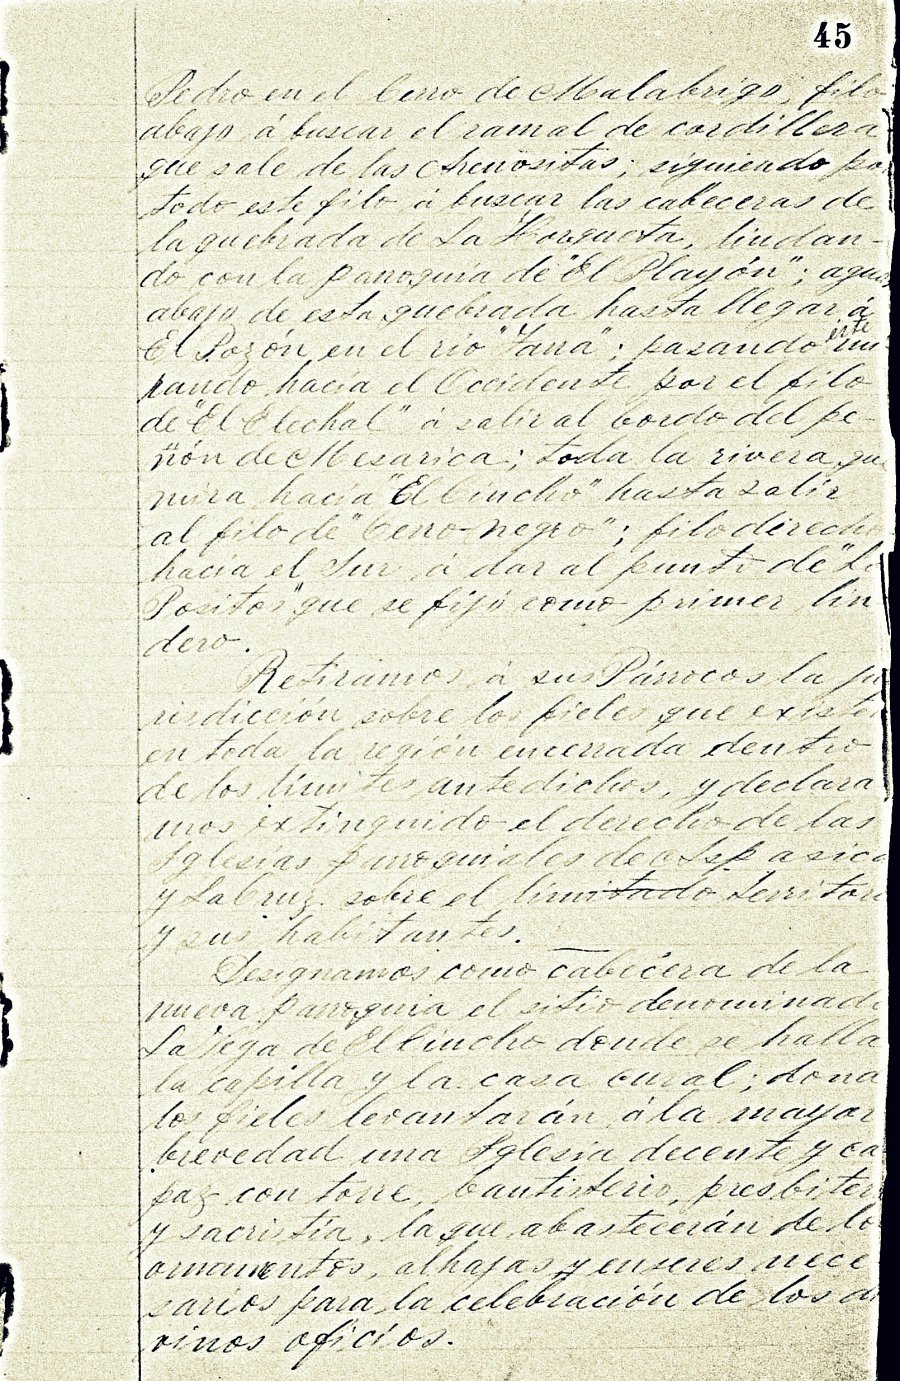 45
Pedro en el Cerro de Malabrigo, filo
abajo á buscar el ramal de cordillera
que sale de las Arenositas; siguiendo po
todo este filo á buscar las cabeceras de
la quebrada de La Horqueta, lindan-
do con la parroquia de "El Playón"; aguas
abajo de esta quebrada hasta llegar á
El Pozón en el rio "Tarra"; pasando este mi
rando hacia el Occidente por el filo
de "El Elechal" á salir al bordo del pe-
ñón de Mesarica; toda la rivera que
mira hacia "El Cincho" hasta salir
al filo de "Cerro-negro"; filo derecho
hacia el Sur á dar al punto de "Lo
Positos" que se fijó como primer lin
dero.
Retiramos á sus Párrocos la ju
risdicción sobre los fieles que existen
en toda la región encerrada dentro
de los límites antedichos, y declara
mos extinguido el derecho de las
Iglesias parroquiales de Aspasica
y La Cruz sobre el limitado territori
y sus habitantes.
Designamos como cabecera de la
nueva parroquia el sitio denominado
La Vega de El Cincho donde se halla
la capilla y la casa cural; dona
los fieles levantarán á la mayor
brevedad una Iglesia decente y ca
paz con torre, bautisterio, presbiter
y sacristía, la que abastecerán de lo
ornamentos, alhajas y enseres nece
sarios para la celebración de los di
vinos oficios.